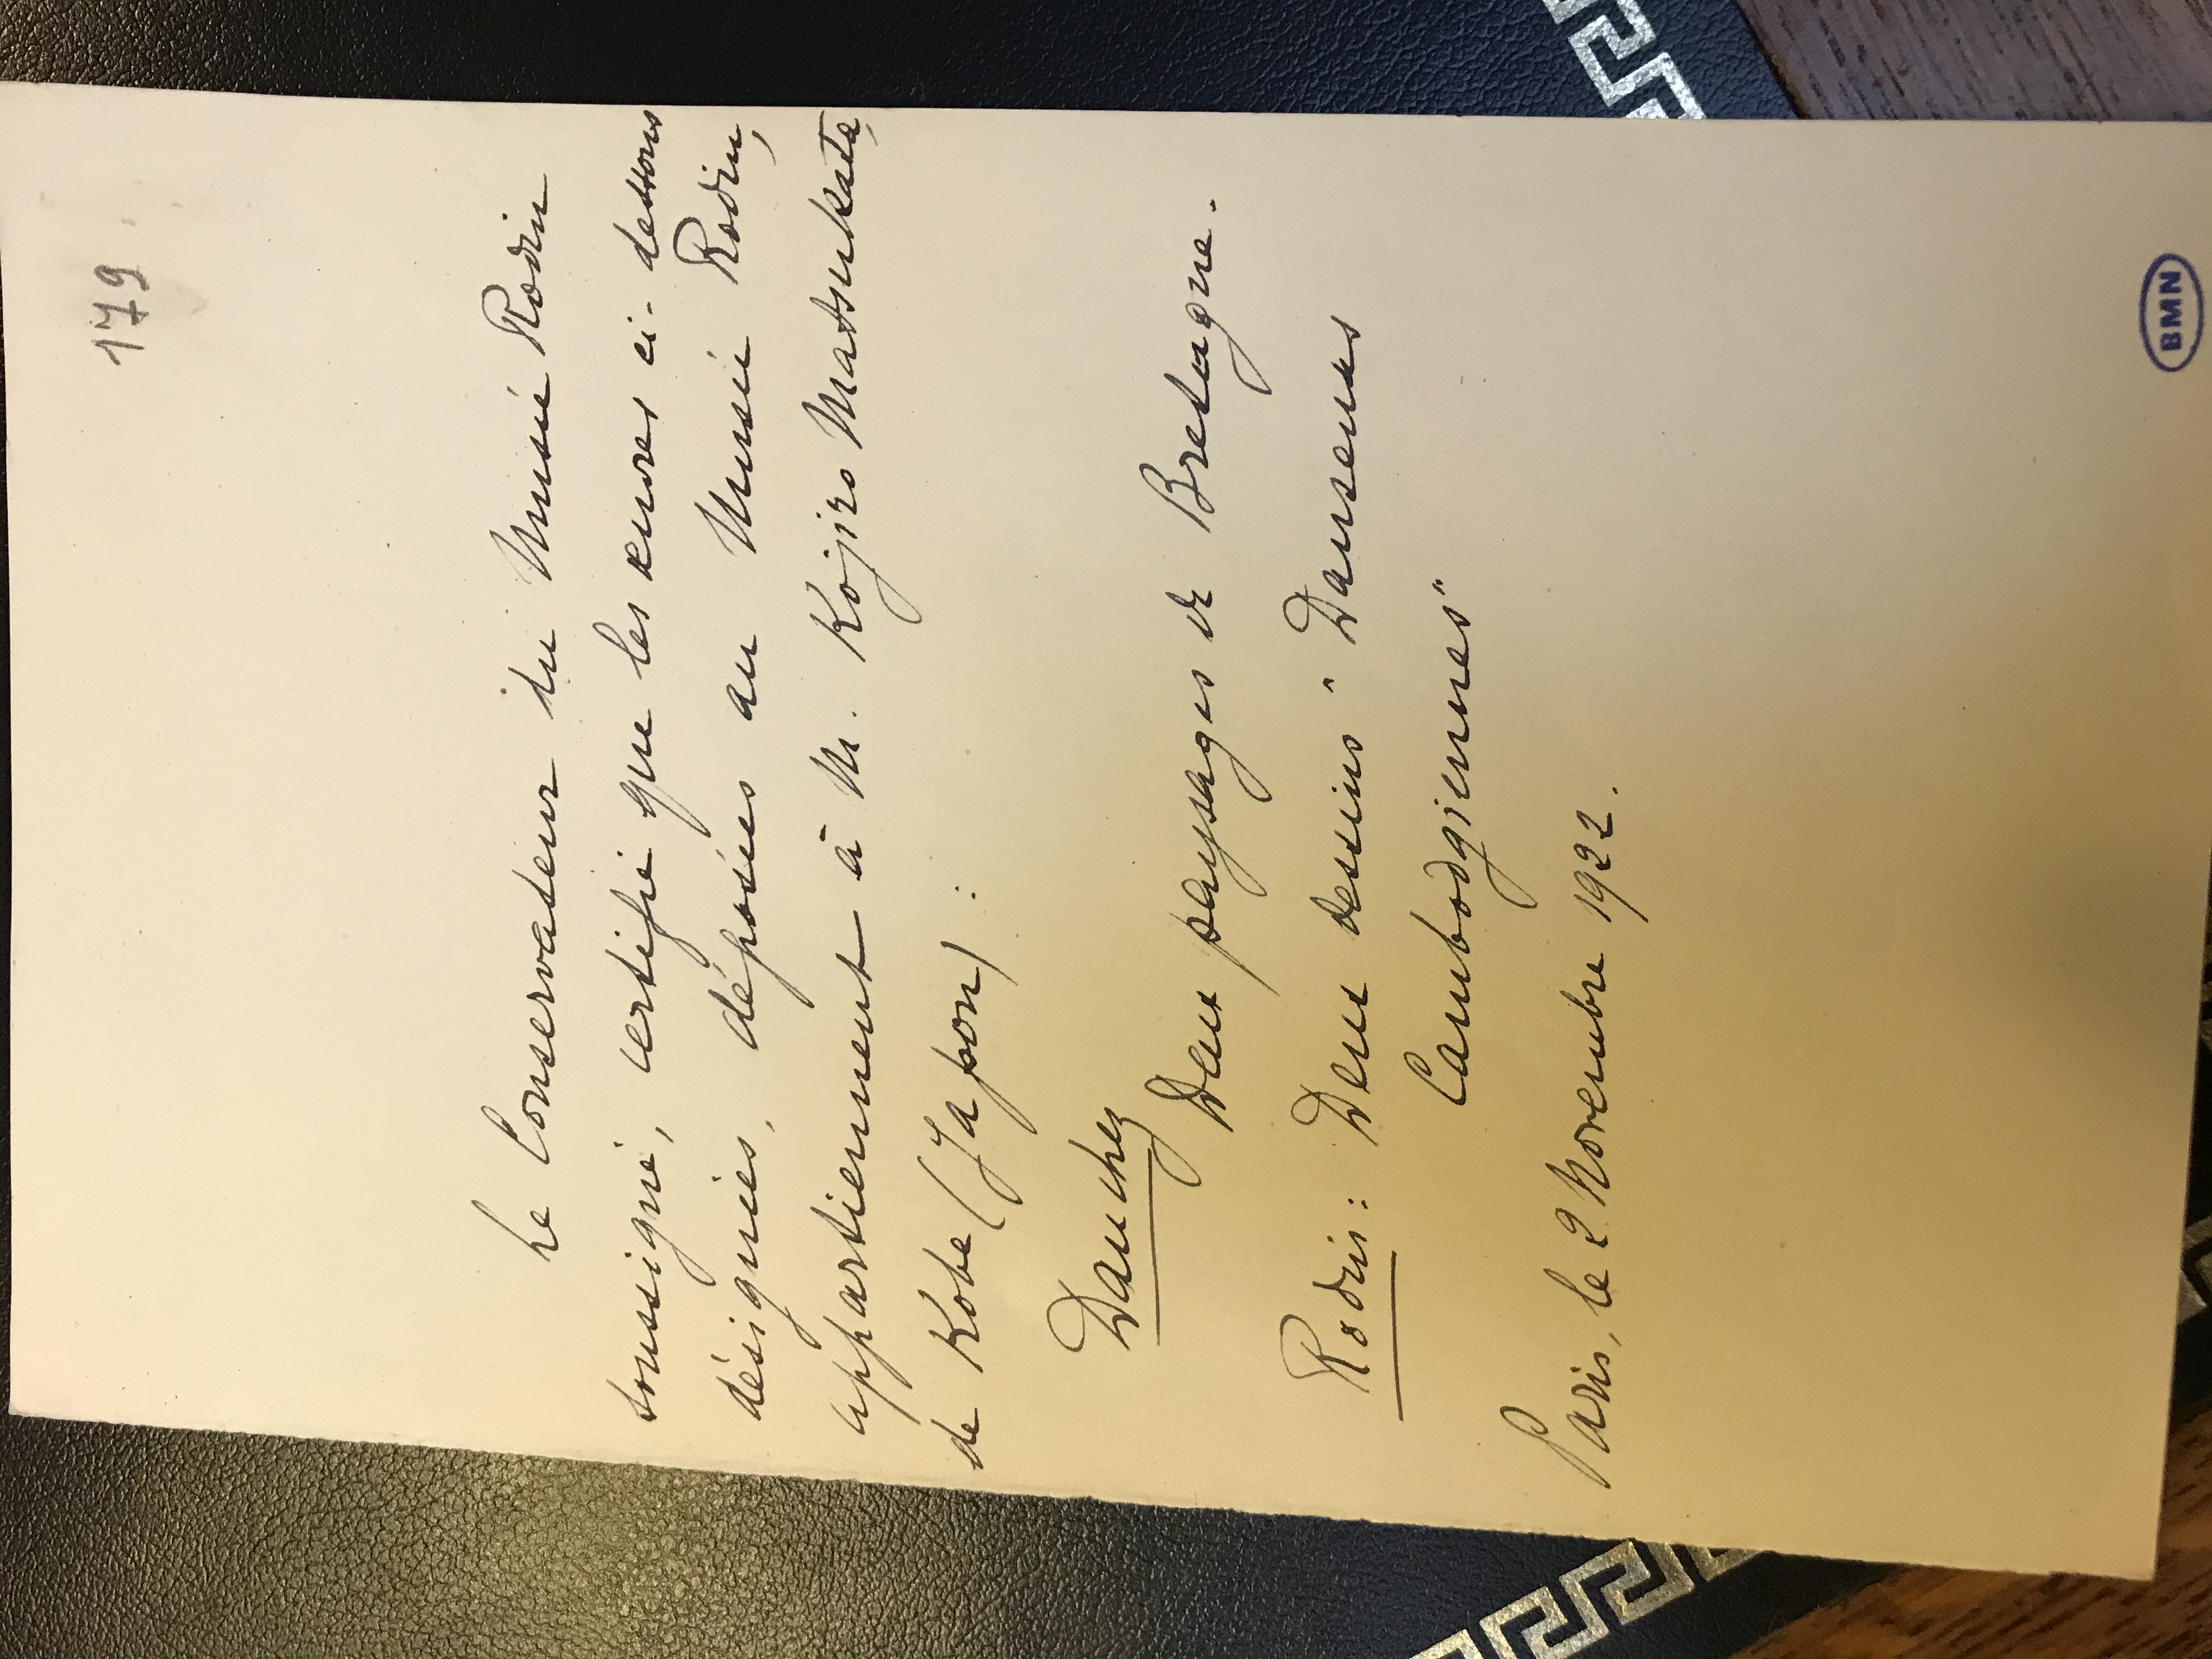 179
Le Conservateur du Musée Rodin
soussigné, certifie que les œuvres ci-dessous
désignées, déposées au Musée Rodin,
appartiennent à M. Kojiro Matsukata,
de Kobe (Japon) :
Dauchez
Deux paysages de Bretagne.
Rodin : Deux dessins "Danseuses
Cambodgiennes"
Paris, le 2 Novembre 1922.
BMN